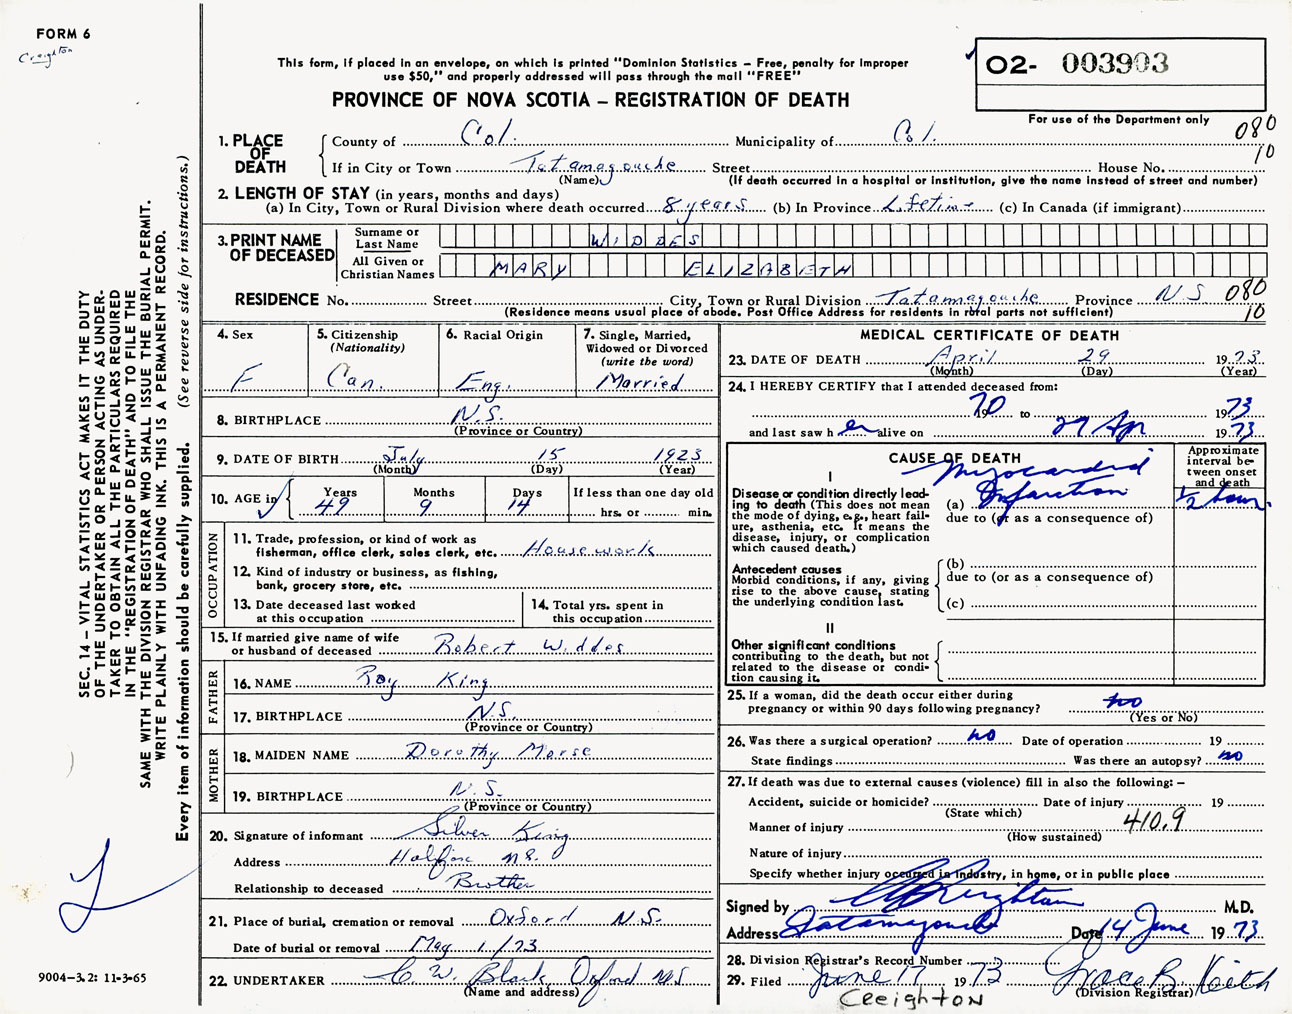 FORM 6
Creighton
This form, if placed in an envelope, on which is printed "Dominion Statistics – Free, penalty for improper
use $50," and properly addressed will pass through the mail "FREE"
PROVINCE OF NOVA SCOTIA – REGISTRATION OF DEATH
02- 003903
For use of the Department only
080
10
1. PLACE OF DEATH
County of Col. Municipality of Col.
If in City or Town Tatamagouche Street House No.
(Name) (If death occurred in a hospital or institution, give the name instead of street and number)
2. LENGTH OF STAY (in years, months and days)
(a) In City, Town or Rural Division where death occurred 8 years (b) In Province Lifetime (c) In Canada (if immigrant)
3. PRINT NAME OF DECEASED
Surname or Last Name WIDDES
All Given or Christian Names MARY ELIZABETH
RESIDENCE No. Street City, Town or Rural Division Tatamagouche Province N.S 080
(Residence means usual place of abode. Post Office Address for residents in rural parts not sufficient) 10
4. Sex F
5. Citizenship (Nationality) Can.
6. Racial Origin Eng.
7. Single, Married, Widowed or Divorced (write the word) Married
8. BIRTHPLACE N.S.
(Province or Country)
9. DATE OF BIRTH July 15 1923
(Month) (Day) (Year)
10. AGE in Years 49 Months 9 Days 14 If less than one day old hrs. or min.
OCCUPATION
11. Trade, profession, or kind of work as
fisherman, office clerk, sales clerk, etc. Housework
12. Kind of industry or business, as fishing,
bank, grocery store, etc.
13. Date deceased last worked
at this occupation
14. Total yrs. spent in
this occupation
15. If married give name of wife
or husband of deceased Robert Widdes
FATHER
16. NAME Roy King
17. BIRTHPLACE N.S.
(Province or Country)
MOTHER
18. MAIDEN NAME Dorothy Morse
19. BIRTHPLACE N.S.
(Province or Country)
20. Signature of informant Silver King
Address Halifax N.S.
Relationship to deceased Brother
21. Place of burial, cremation or removal Oxford N.S.
Date of burial or removal May 1/73
22. UNDERTAKER C. W. Black Oxford N.S
(Name and address)
MEDICAL CERTIFICATE OF DEATH
23. DATE OF DEATH April 29 1973
(Month) (Day) (Year)
24. I HEREBY CERTIFY that I attended deceased from:
1970 to 1973
and last saw her alive on 27 Apr 1973
CAUSE OF DEATH
Approximate interval between onset and death
I
Disease or condition directly leading to death (This does not
mean the mode of dying, e.g., heart failure, asthenia, etc. It means the
disease, injury, or complication
which caused death.)
(a) Myocardial Infarction 1/2 hour.
due to (or as a consequence of)
Antecedent causes
Morbid conditions, if any, giving
rise to the above cause, stating
the underlying condition last.
(b)
due to (or as a consequence of)
(c)
II
Other significant conditions
contributing to the death, but not
related to the disease or condition causing it.
25. If a woman, did the death occur either during
pregnancy or within 90 days following pregnancy? no
(Yes or No)
26. Was there a surgical operation? no Date of operation 19
State findings Was there an autopsy? no
27. If death was due to external causes (violence) fill in also the following: –
Accident, suicide or homicide? Date of injury 19
(State which)
Manner of injury 410.9
(How sustained)
Nature of injury
Specify whether injury occurred in industry, in home, or in public place
Signed by Creighton M.D.
Address Tatamagouche Date 14 June 1973
28. Division Registrar's Record Number
29. Filed June 17 1973 Grace B. Keith
(Division Registrar)
Creighton
SEC. 14 – VITAL STATISTICS ACT MAKES IT THE DUTY
OF THE UNDERTAKER OR PERSON ACTING AS UNDER-
TAKER TO OBTAIN ALL THE PARTICULARS REQUIRED
IN THE "REGISTRATION OF DEATH" AND TO FILE THE
SAME WITH THE DIVISION REGISTRAR WHO SHALL ISSUE THE BURIAL PERMIT.
WRITE PLAINLY WITH UNFADING INK. THIS IS A PERMANENT RECORD.
Every item of information should be carefully supplied. (See reverse side for instructions.)
9004–3.2: 11-3-65